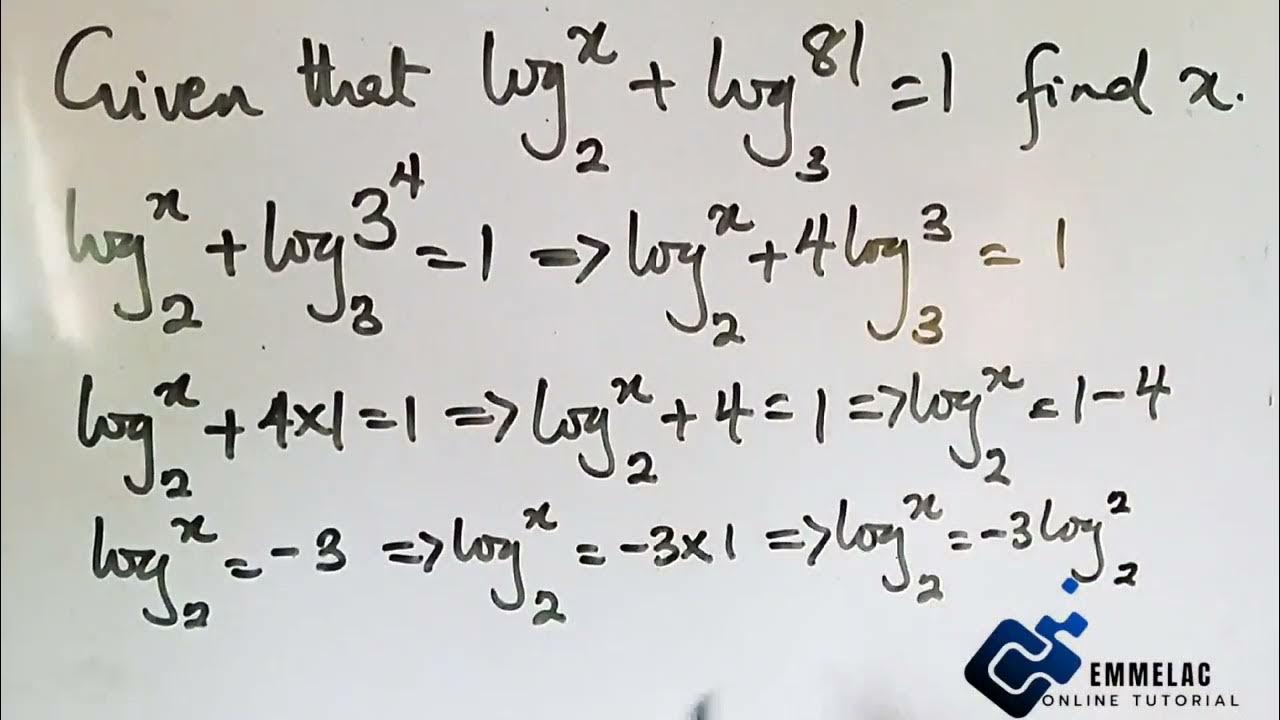 Given that log₂ˣ + log₃⁸¹ = 1 find x.
log₂ˣ + log₃3⁴ = 1 => log₂ˣ + 4log₃³ = 1
log₂ˣ + 4×1 = 1 => log₂ˣ + 4 = 1 => log₂ˣ = 1 - 4
log₂ˣ = -3 => log₂ˣ = -3×1 => log₂ˣ = -3log₂²
EMMELAC
ONLINE TUTORIAL